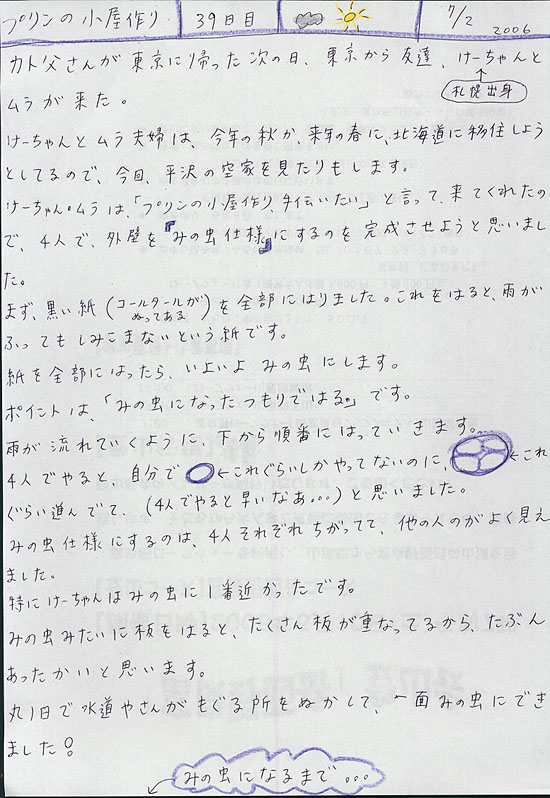 プリンの小屋作り 39日目 7/2 2006
カト父さんが東京に帰った次の日、東京から友達、けーちゃんと
ムラが来た。
札幌出身
けーちゃんとムラ夫婦は、今年の秋か、来年の春に、北海道に移住しよう
としてるので、今回、平沢の空家を見たりもします。
けーちゃん・ムラは、「プリンの小屋作り手伝いたい」と言って、来てくれたの
で、4人で、外壁を『みの虫仕様』にするのを完成させようと思いまし
た。
まず、黒い紙(コールタールがぬってある)を全部にはりました。これをはると、雨が
ふってもしみこまないという紙です。
紙を全部にはったら、いよいよみの虫にします。
ポイントは、「みの虫になったつもりではる。」です。
雨が流れていくように、下から順番にはっていきます。
4人でやると、自分で ←これぐらいしかやってないのに、 ←これ
ぐらい進んでて、(4人でやると早いなあ...)と思いました。
みの虫仕様にするのは、4人それぞれちがってて、他の人のがよく見え
ました。
特にけーちゃんはみの虫に1番近かったです。
みの虫みたいに板をはると、たくさん板が重なってるから、たぶん
あったかいと思います。
丸1日で水道やさんがもぐる所をぬかして、一面みの虫にでき
ました!
みの虫になるまで...